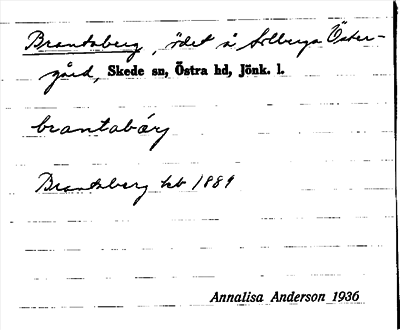 Brantaberg, ödet å Solberga Öster-
gård, Skede sn, Östra hd, Jönk. l.
brantabärj
Brantsberg kb 1889
Annalisa Anderson 1936